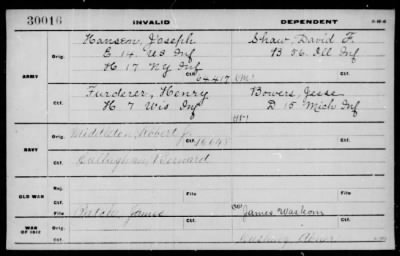 30016 INVALID DEPENDENT
Hanson, Joseph Shaw, David F.
Orig. E 14 US Inf B 86 Ill Inf
H 17 NY Inf
ARMY Ctf.
Furderer, Henry Bowers, Jesse
H 7 Wis Inf D 15 Mich Inf
Ctf.
Middleton, Robert J.
Orig. Ctf.
NAVY
Callaghan, Bernard
Ctf.
Orig.
OLD WAR File File
Ctf.
Patch, James James Waskom
Orig. Ctf. Ctf.
WAR OF 1812